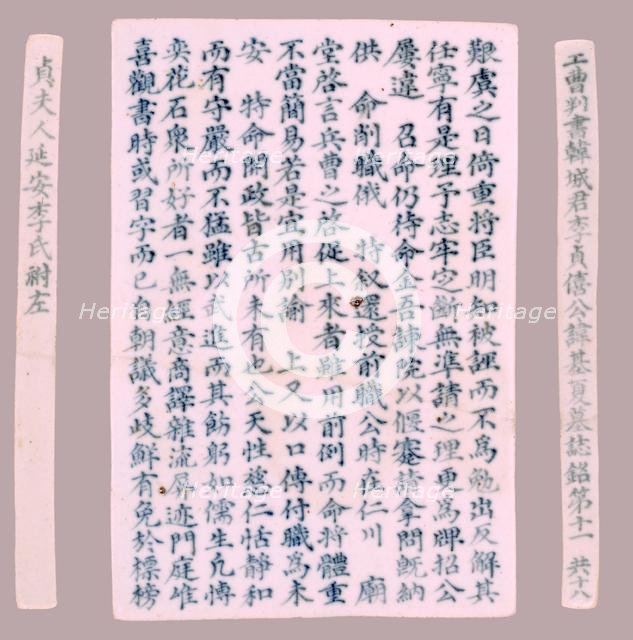 工曹判書韓城君李貞僖公諱基夏墓誌銘第十一 共十八
艱虞之日倚重將臣明知被誣而不爲勉出反解其
任寧有是理予志牢定斷無準請之理更爲牌招公
屢違 召命仍待命金吾諫院以偃蹇請拿問旣納
供 命削職俄 特叙還授前職公時在仁川 廟
堂啓言兵曹之啓從上來者雖用前例而命將體重
不當簡易若是宜用別諭 上又以口傳付職爲未
安 特命開政皆古所未有也公天性慈仁恬靜和
而有守嚴而不猛雖以武進而其飭躬如儒生凡博
奕花石衆所好者一無經意商譯雜流屏迹門庭唯
喜觀書時或習字而已當朝議多歧鮮有免於標榜
貞夫人延安李氏祔左
Heritage
Heritage
Heritage
Heritage
Heritage
Heritage
Heritage
Heritage